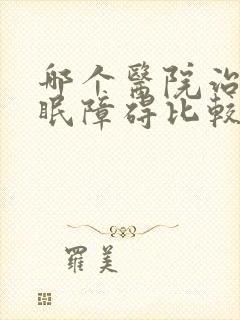 哪个醫院治
眠障碍比較
羅美